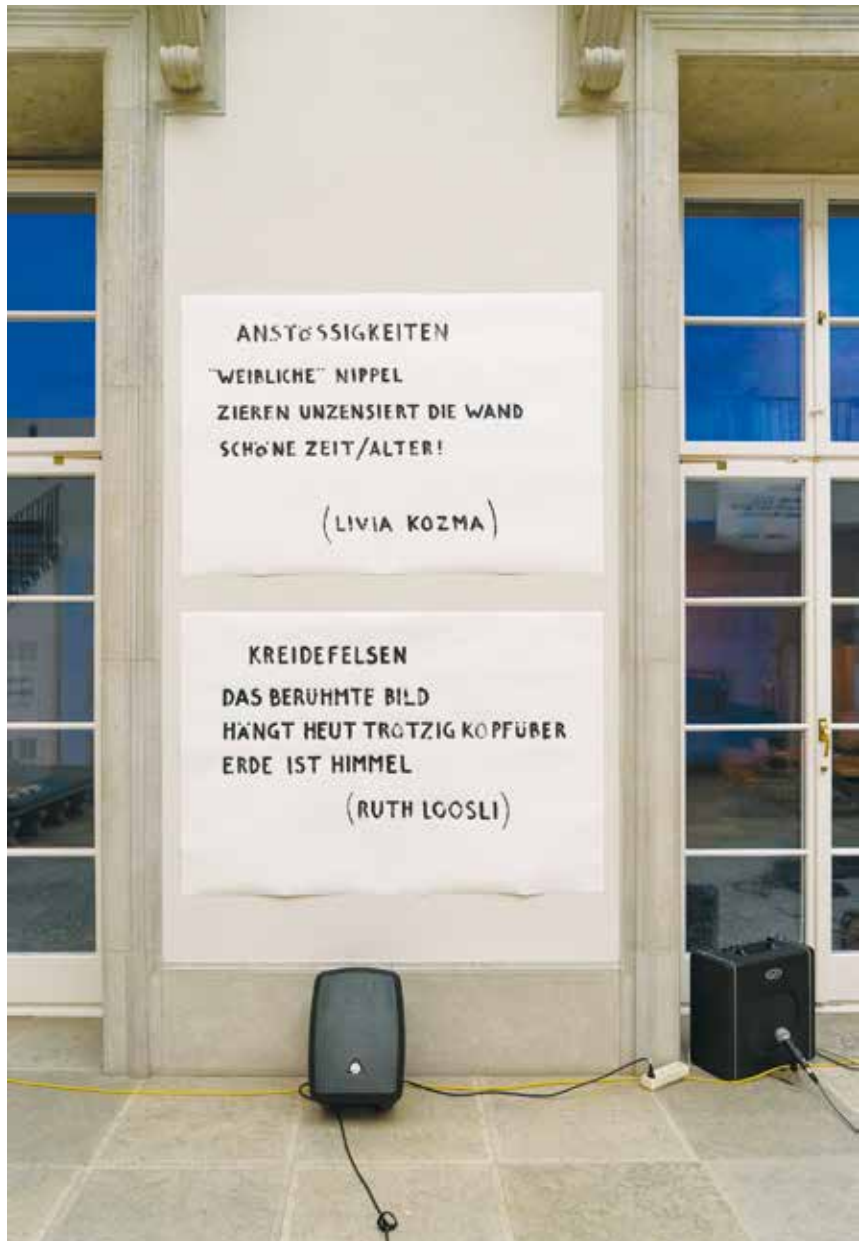 ANSTÖSSIGKEITEN
"WEIBLICHE" NIPPEL
ZIEREN UNZENSIERT DIE WAND
SCHÖNE ZEIT/ALTER!
(LIVIA KOZMA)
KREIDEFELSEN
DAS BERÜHMTE BILD
HÄNGT HEUT TROTZIG KOPFÜBER
ERDE IST HIMMEL
(RUTH LOOSLI)